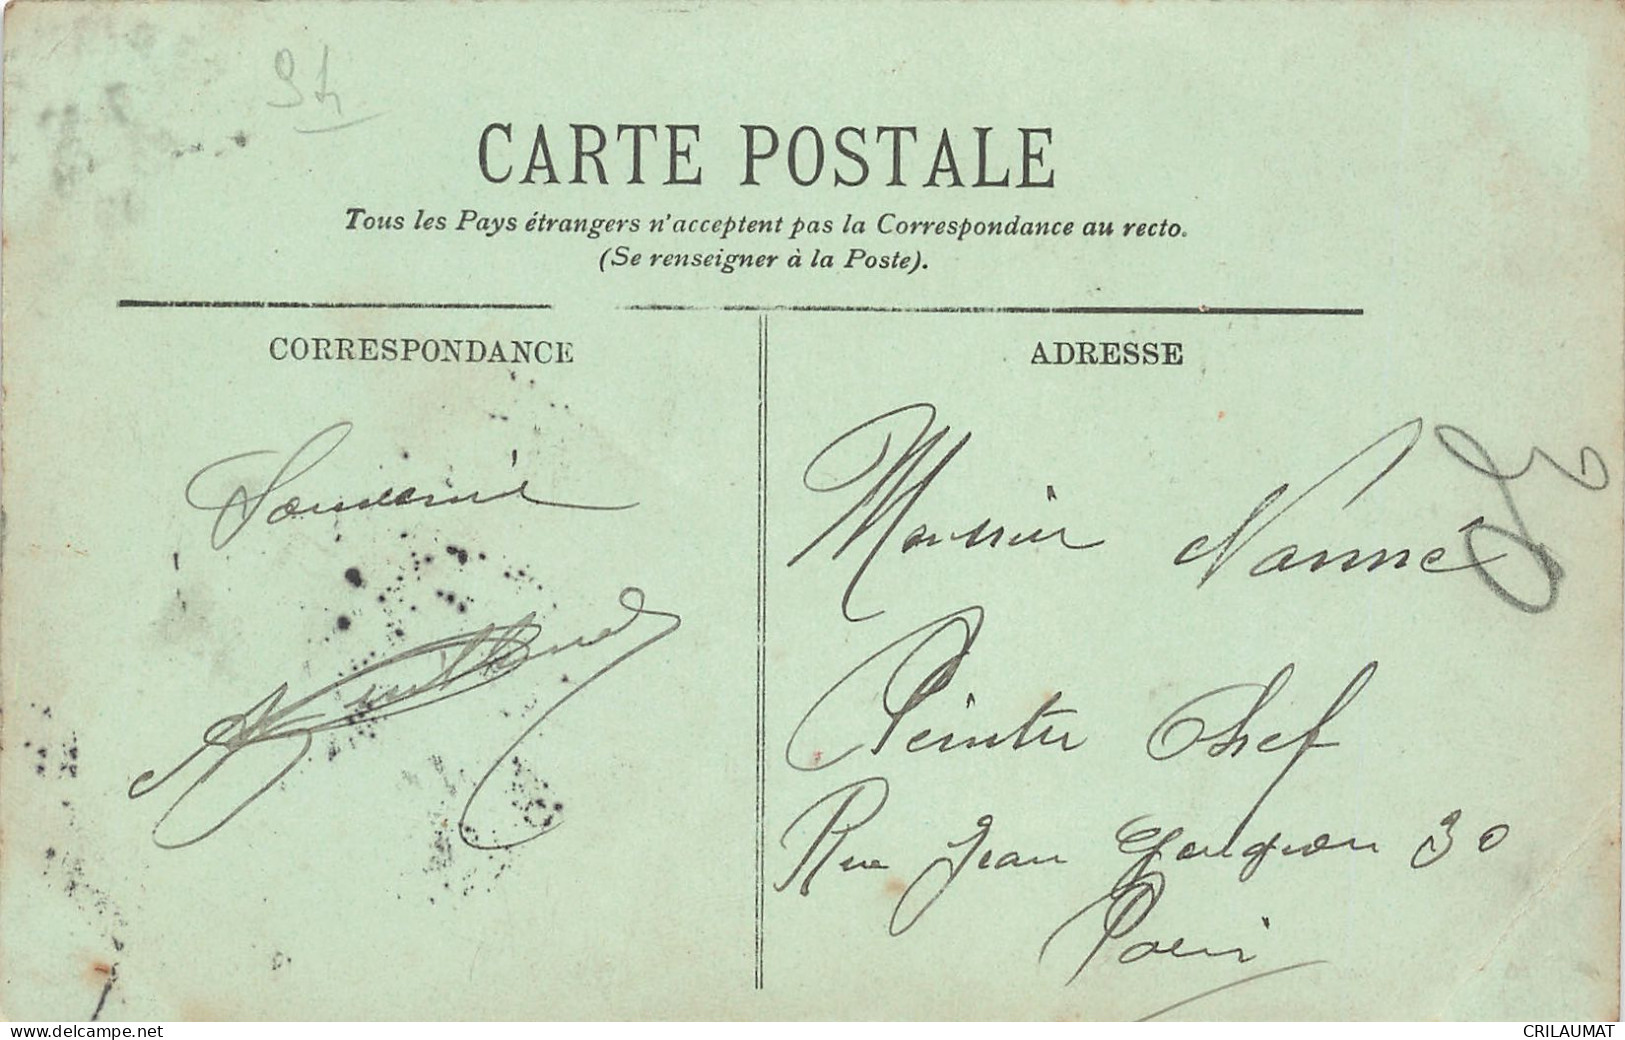 CARTE POSTALE
Tous les Pays étrangers n'acceptent pas la Correspondance au recto.
(Se renseigner à la Poste).
CORRESPONDANCE
ADRESSE
Souvenir
Monsieur
Peintre Chef
Rue Jean Goujon 30
Paris
www.delcampe.net
CRILAUMAT